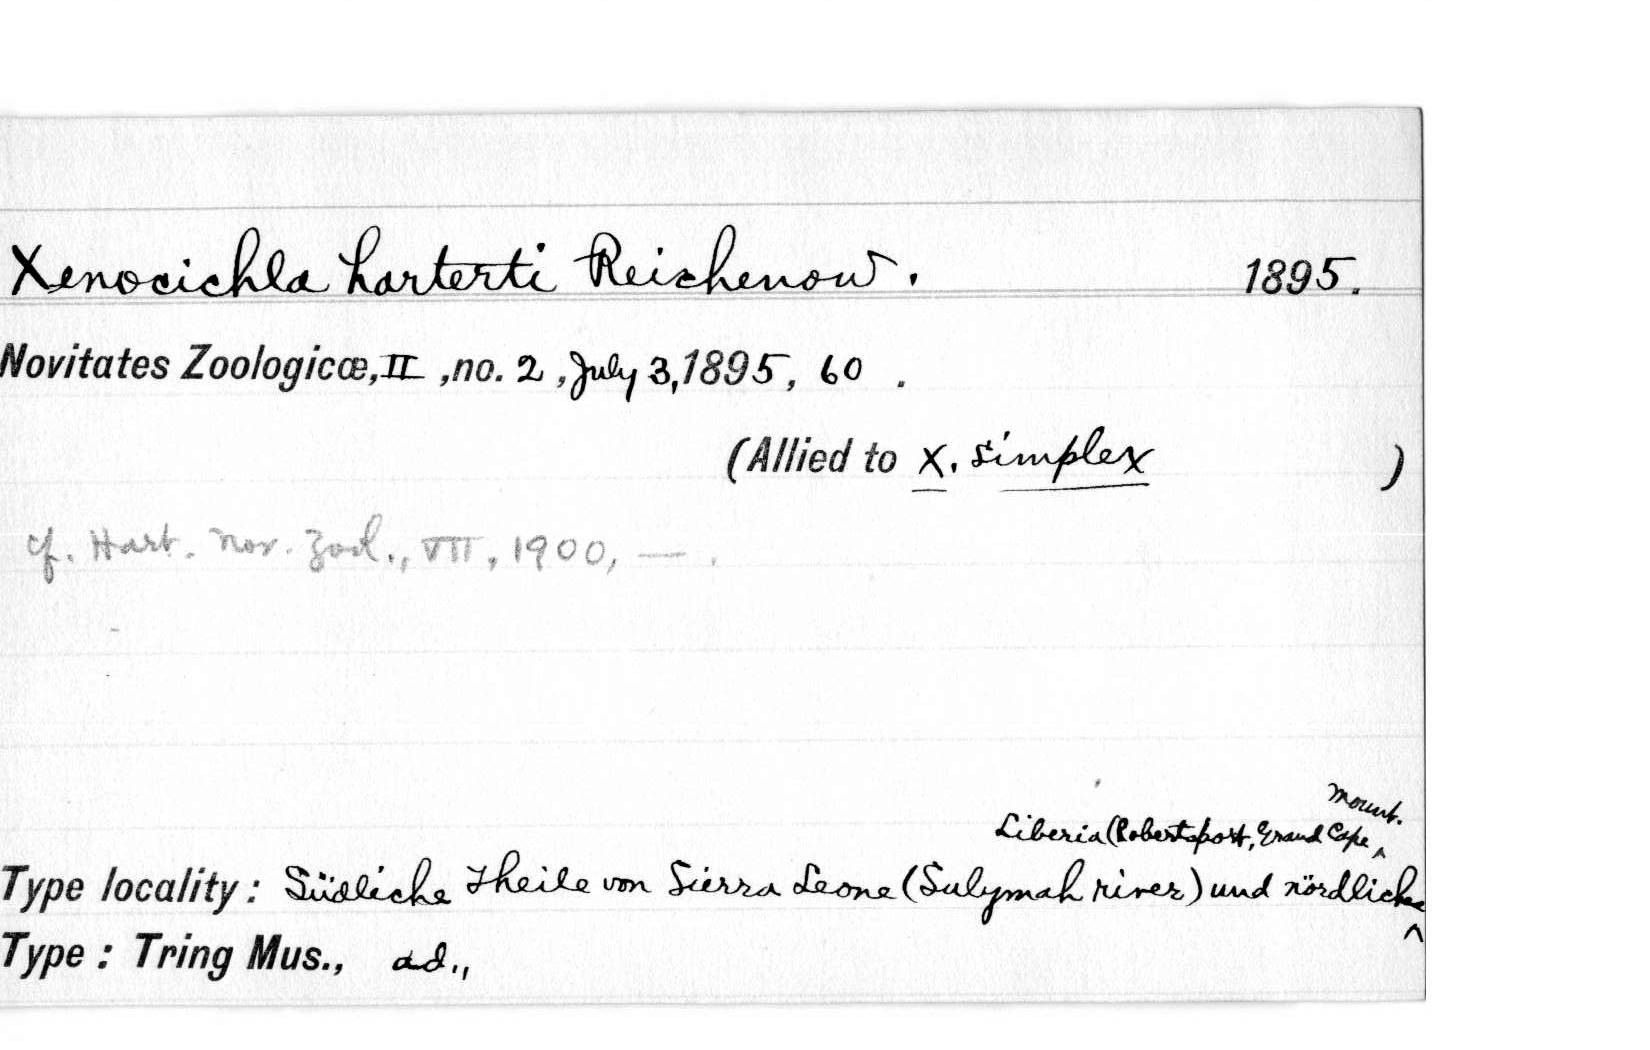 Xenocichla harterti Reichenow. 1895.
Novitates Zoologicæ, II, no. 2, July 3, 1895, 60.
(Allied to X. simplex )
cf. Hart. Nov. Zool., VII, 1900, — .
Mount.
Liberia (Robertsport, Grand Cape ^
Type locality: Südliche Theile von Sierra Leone (Sulymah river) und nördliches ^
Type: Tring Mus., ad.,